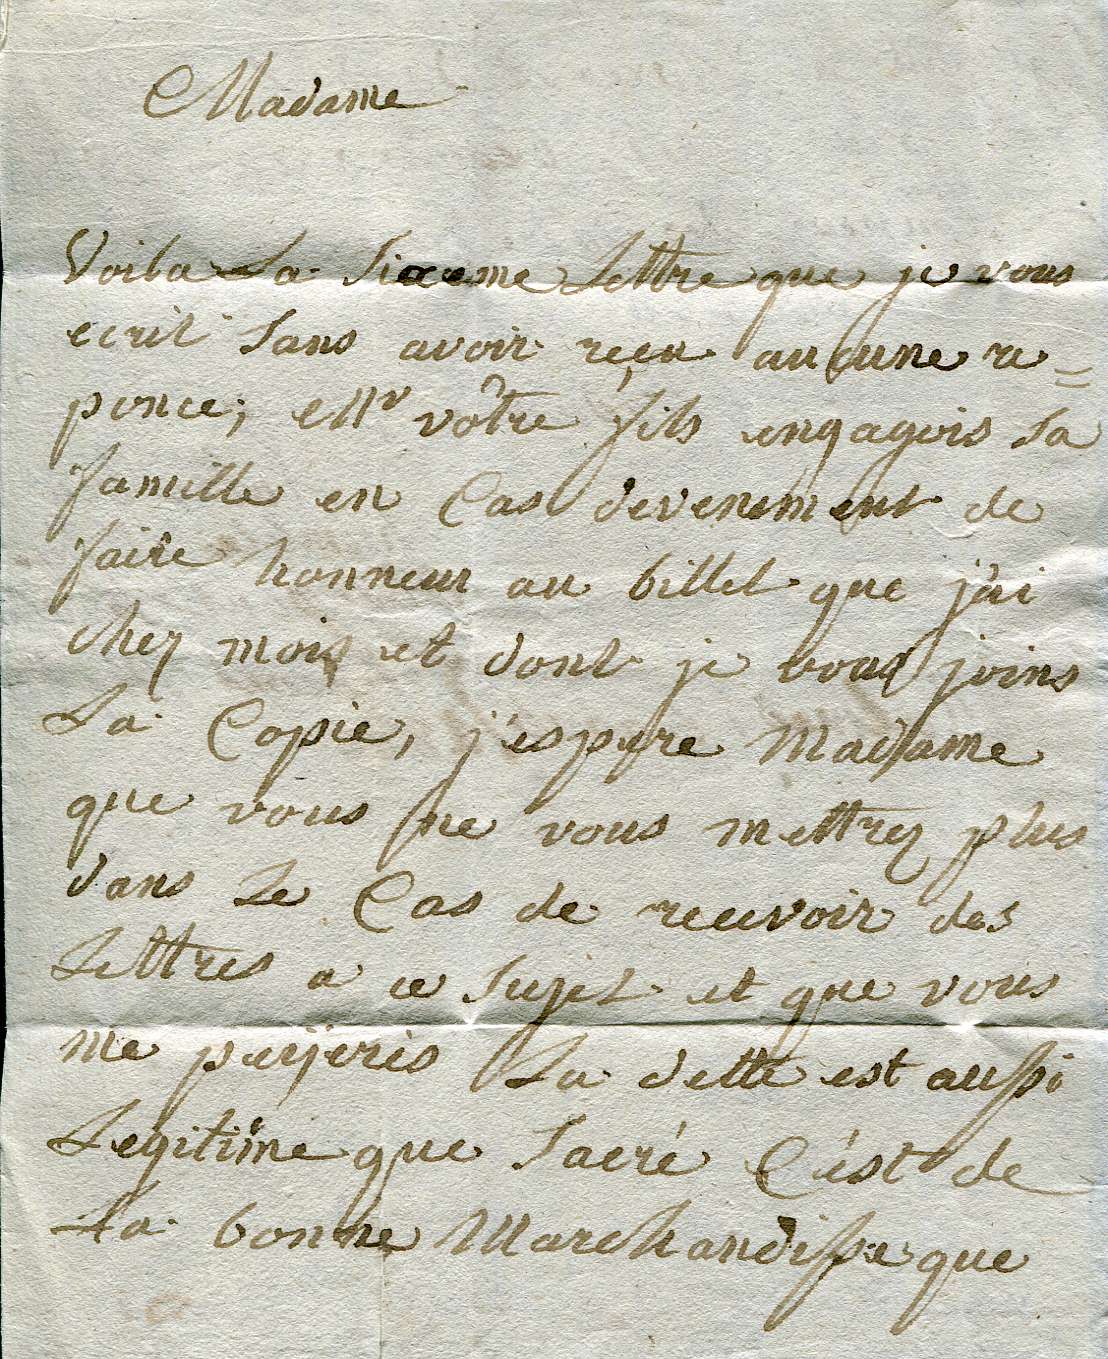 Madame
Voila La Sixieme Lettre que je vous
ecrit Sans avoir reçu aucune re=
ponce; Mr vôtre fils engageois Sa
famille en Cas d'evenement de
faire honneur au billet que j'ai
chez mois et dont je vous joins
La Copie, j'espere Madame
que vous ne vous mettrez plus
dans Le Cas de recevoir des
Lettres a ce Sujet et que vous
me payeris La dette est aussi
Legitime que Sacré C'est de
La bonne Marchandisse que